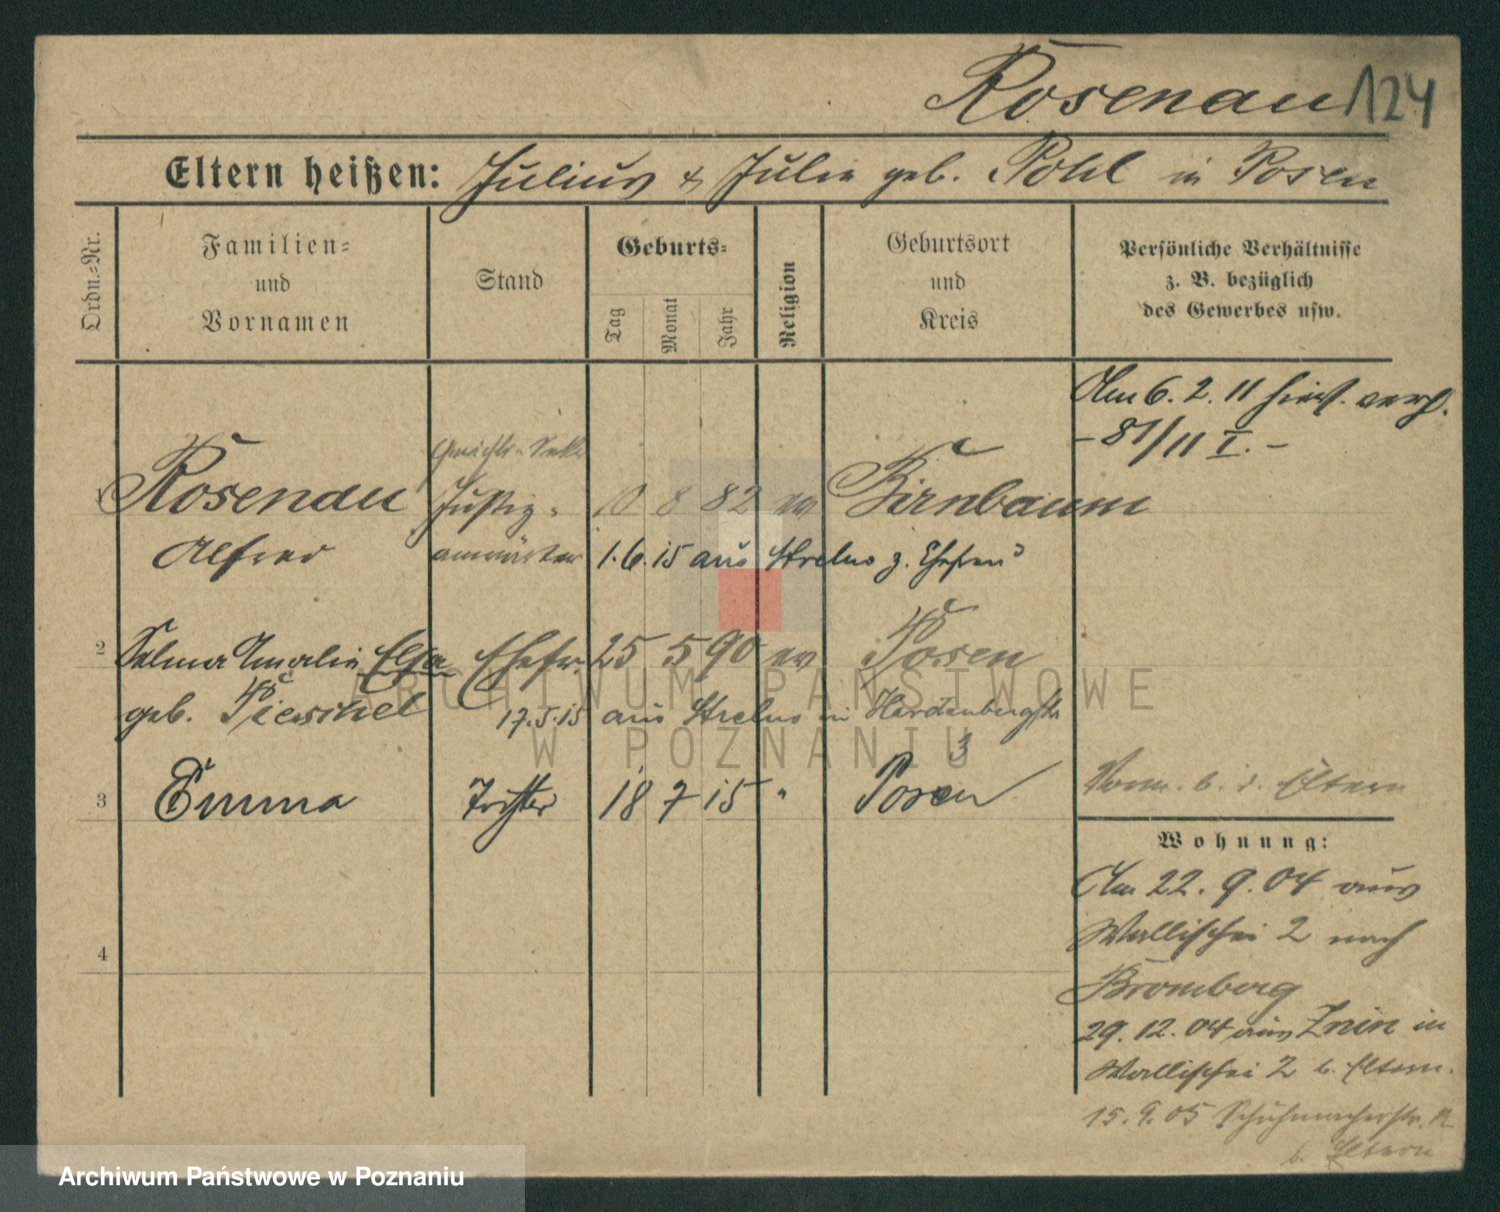 Rosenau 124
Eltern heißen: Julius & Julie geb. Pohl in Posen
Ordn.-Nr.
Familien-
und
Vornamen
Stand
Geburts-
Tag
Monat
Jahr
Religion
Geburtsort
und
Kreis
Persönliche Verhältnisse
z. B. bezüglich
des Gewerbes usw.
Am 6. 2. 11 hies. verh.
- 81/11 I. -
1 Rosenau Justiz- 10 8 82 ev Birnbaum
Alfred anwärter 1.6.15 aus Strelno z. Ehefrau
2 Selma Amalie Elsa Ehefr. 25 5 90 ev Posen
geb. Pieschel 17.5.15 aus Strelno in Hardenbergstr.
3
3 Emma Tochter 18 7 15 " Posen
b. d. Eltern
4
Wohnung:
Am 22. 9. 04 aus
Wallischei 2 nach
Bromberg
29. 12. 04 aus Znin in
Wallischei 2 b. Eltern.
15. 9. 05 Schuhmacherstr.
b. Eltern
ARCHIWUM PAŃSTWOWE
W POZNANIU
Archiwum Państwowe w Poznaniu